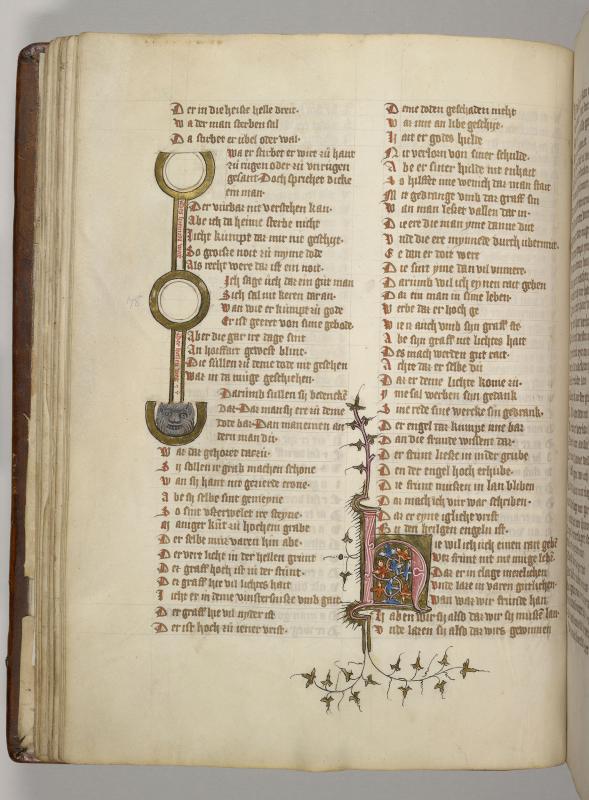 Der in die heiße helle vert·
Wa der man sterben sal
Da stirbet er ubel oder wal·
Wa er stirbet er wirt zů hant
zů rugen oder zů unrugen
gesant· Doch sprichet dicke
ein man·
Der virbar nit verstehen kan·
Abe ich da heime sterbe nicht
Licht kumpt dar mir nit geschyt·
So groiße noit zů myme tode
Als recht were dar ist ein noit·
Ich sage ůch dar ein gůt man
Sich sal nit keren daran·
wan wie er kůmpt zů gode
Er ist geeret von sime gebode
Aber die gar ire dage sint
An hoiffart gewest blint·
Die sůllen zů deme dode nit gesehen
War in da můge geschiehen·
Darumb sullen sij bedencken
dar· Dar man sij ere zů deme
dode bar· Dan man einen an
dern man dů·
War dar gehore darzů·
Sij sollen ir grab machen schone
Wan sij hant nit gezierde crone·
Abe sij selbe sint gemeyne
So sint userwelet ire steyne·
Maniger kůt zů hochem grabe
Der selbe můz varen hin abe·
Der vert licht in der hellen grůnt
Des graff hoch ist in der stůnt·
Des graff hie vil lichtes hait
Licht er in deme vinsternisse umb gait·
Des graff hie vil nyder ist
Der ist hoch zů iener vrist·
Deme doden geschaden nicht
War ime an libe geschyt·
Hait er godes hulde
Nit verlorn von siner schulde·
Abe er siner hulde nit enhait
So hilffet ine wenich dar man stait
Mit gedrange umb dar graff sin
Wan man leßet vallen dar in·
Die ere die man yme danne dut
Und die ere mynnede durch ubermut·
Ee dan er doit were
Die sint yme dan vil unmere·
Darumb wil ich eynen rait geben
Dar ein man in sime leben·
Werbe dar er hoch ge
Wie n auch umb syn graff ste
Abe syn graff nit lichtes hait·
Des mach werden gůt rait·
Achte dar er selbe dů
Dar er deme lichte kome zů·
Yme sal werben syn gedank
Sine rede sine wercke sin gedrank·
Der engel dar kumpt ime bar
Dan die frunde wissent dar·
Der sůnt liesse in in der grůbe
Den der engel hoch erhůbe·
Die sůnt musten in lan bliben
Dar mach ich vůr war schriben·
Dar er eyne igliche vrist
By den heilgen engeln ist·
Nie wil ich uch einen rait geben
Wer sůnt nit mit můge leben
Dar er in clage meselichen
Unde lare in varen gutlichen·
Wan war wir frůnde han
Haben wir sij also dar wir sij můsen lan·
Unde laren sij also dar wirs gewinnen